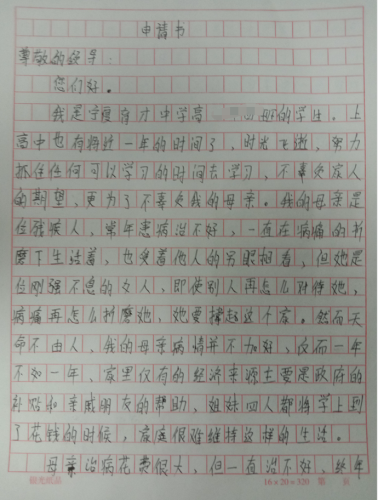 申请书
尊敬的领导:
您们好。
我是宁陵育才中学高一 班的学生。上
高中也有将近一年的时间了，时光飞逝，努力
抓住任何可以学习的时间去学习，不辜负家人
的期望，更为了不辜负我的母亲。我的母亲是
位残疾人，常年患病治不好，一直在病痛的折
磨下生活着，也受着他人的另眼相看，但她是
位刚强不息的女人，即使别人再怎么对待她，
病痛再怎么折磨她，她要撑起这个家。然而天
命不由人，我的母亲病情并不加好，反而一年
不如一年，家里仅有的经济来源主要是政府的
补贴和亲戚朋友的帮助，姐妹四人都将学上到
了花钱的时候，家庭很难维持这样的生活。
母亲治病花费很大，但一直治不好，些年
16×20=320 第 页